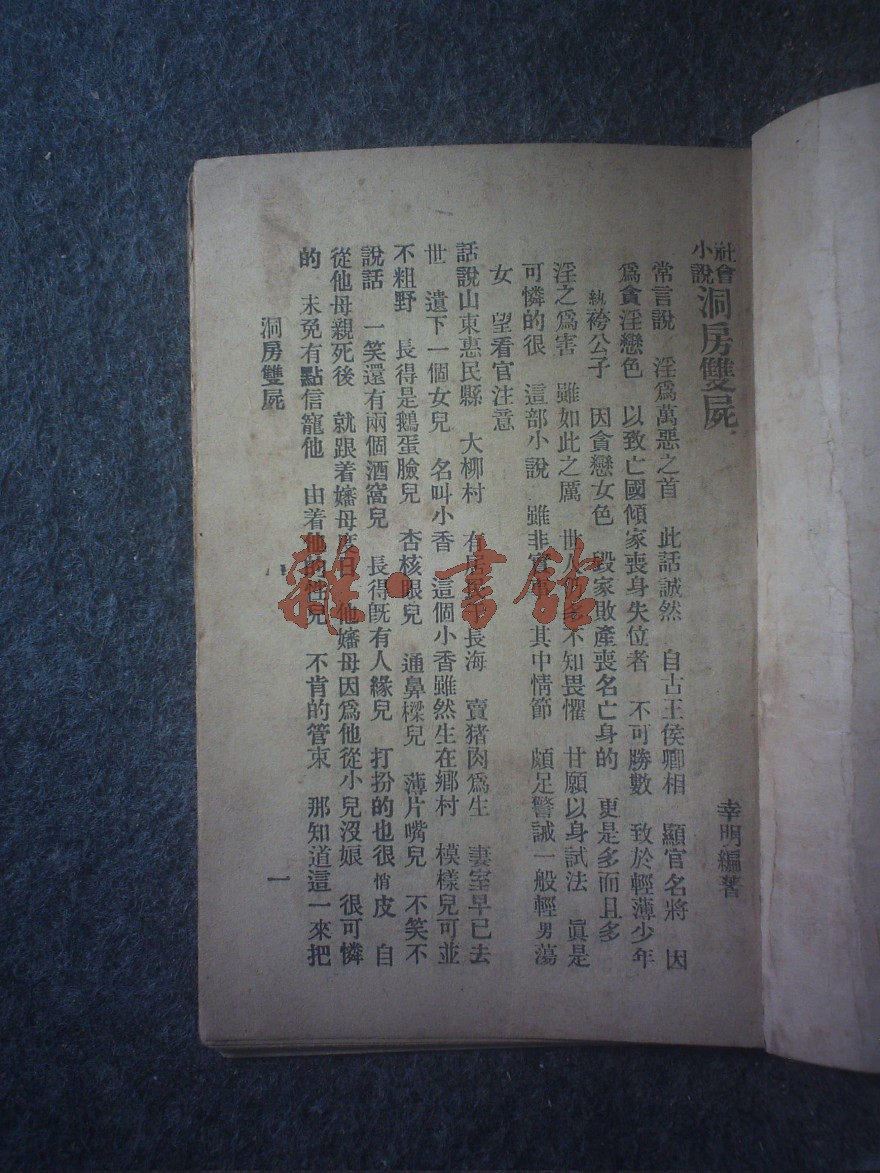 社會小說 洞房雙屍
幸明編著
常言說 淫爲萬惡之首 此話誠然 自古王侯卿相 顯官名將 因
爲貪淫戀色 以致亡國傾家喪身失位者 不可勝數 致於輕薄少年
紈袴公子 因貪戀女色 毀家敗產喪名亡身的 更是多而且多
淫之爲害 雖如此之厲 世人 不知畏懼 甘願以身試法 眞是
可憐的很 這部小說 雖非實事 其中情節 頗足警誡一般輕男蕩
女 望看官注意
話說山東惠民縣 大柳村 有居民 長海 賣猪肉爲生 妻室早已去
世 遺下一個女兒 名叫小香 這個小香雖然生在鄉村 模樣兒可並
不粗野 長得是鵝蛋臉兒 杏核眼兒 通鼻樑兒 薄片嘴兒 不笑不
說話 一笑還有兩個酒窩兒 長得旣有人緣兒 打扮的也很悄皮 自
從他母親死後 就跟着嬸母度日 他嬸母因爲他從小兒沒娘 很可憐
的 未免有點信寵他 由着他的性兒 不肯的管束 那知道這一來把
洞房雙屍
一
雜·書館